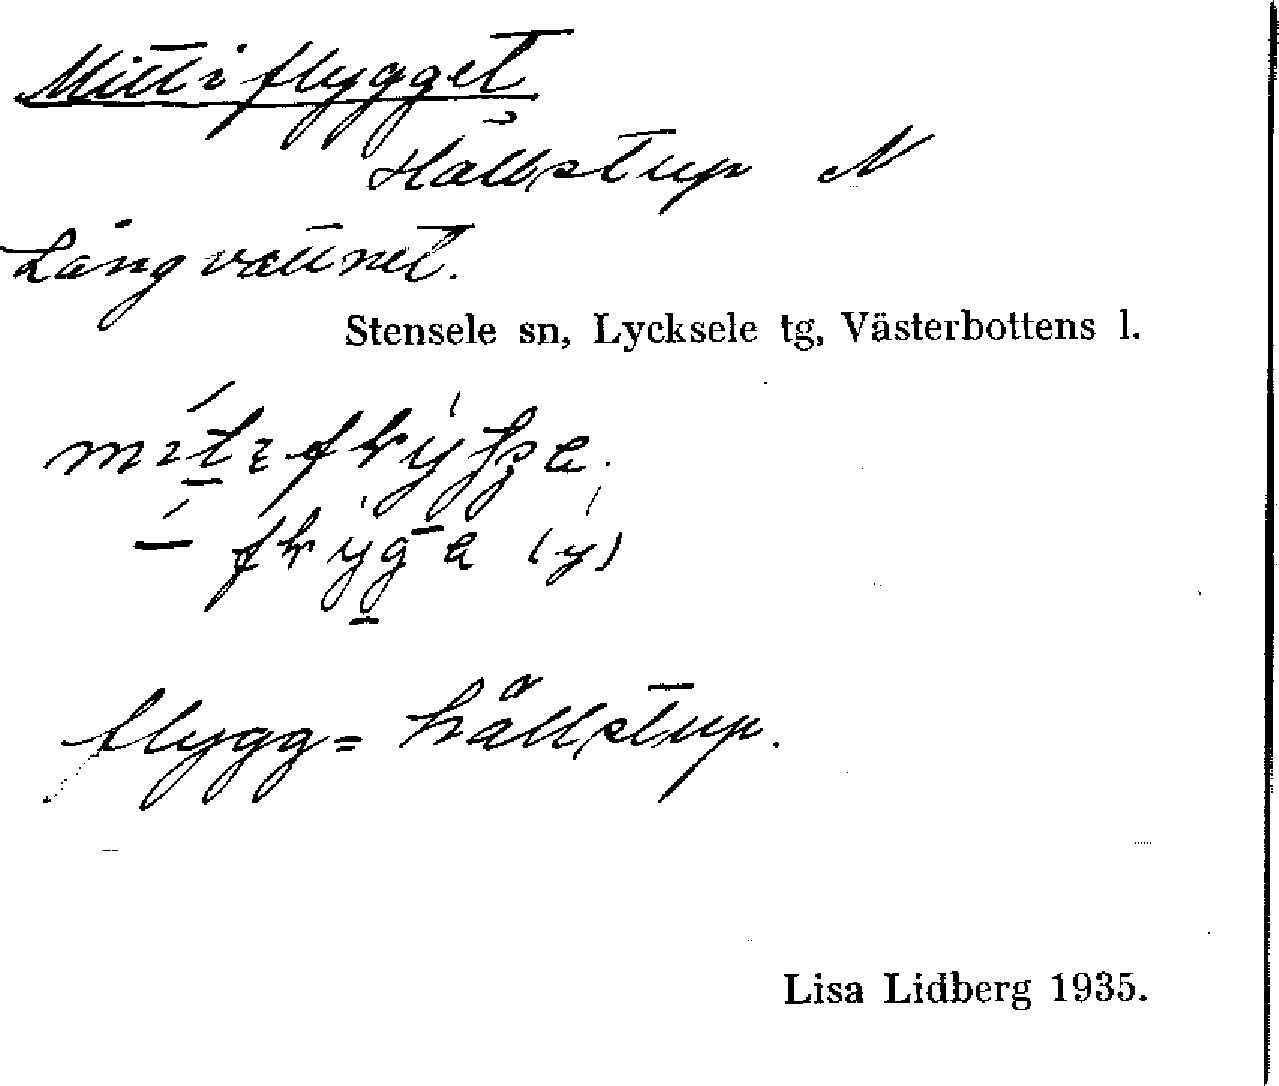 Mitt i flygget
Hällstup N
Långvattnet.
Stensele sn, Lycksele tg, Västerbottens l.
flygg = hällstup.
Lisa Lidberg 1935.